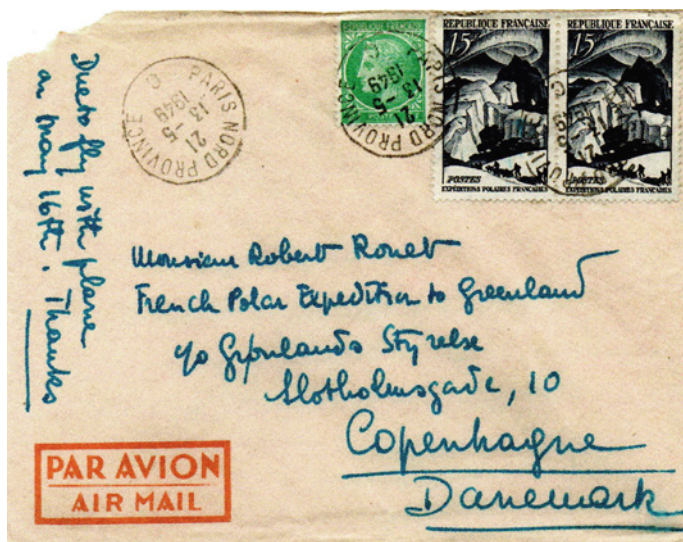 Due to fly with plane
on May 16th. Thanks
PARIS NORD PROVINCE
21
13 -5
1949
REPUBLIQUE FRANÇAISE
PARIS NORD PROVINCE
21
13 -5
1949
REPUBLIQUE FRANÇAISE
15F
POSTES
EXPÉDITIONS POLAIRES FRANÇAISES
REPUBLIQUE FRANÇAISE
15F
POSTES
EXPÉDITIONS POLAIRES FRANÇAISES
Monsieur Robert Rouet
French Polar Expedition to Greenland
c/o Grønlands Styrelse
Slotholmsgade, 10
Copenhagne
Danemark
PAR AVION
AIR MAIL